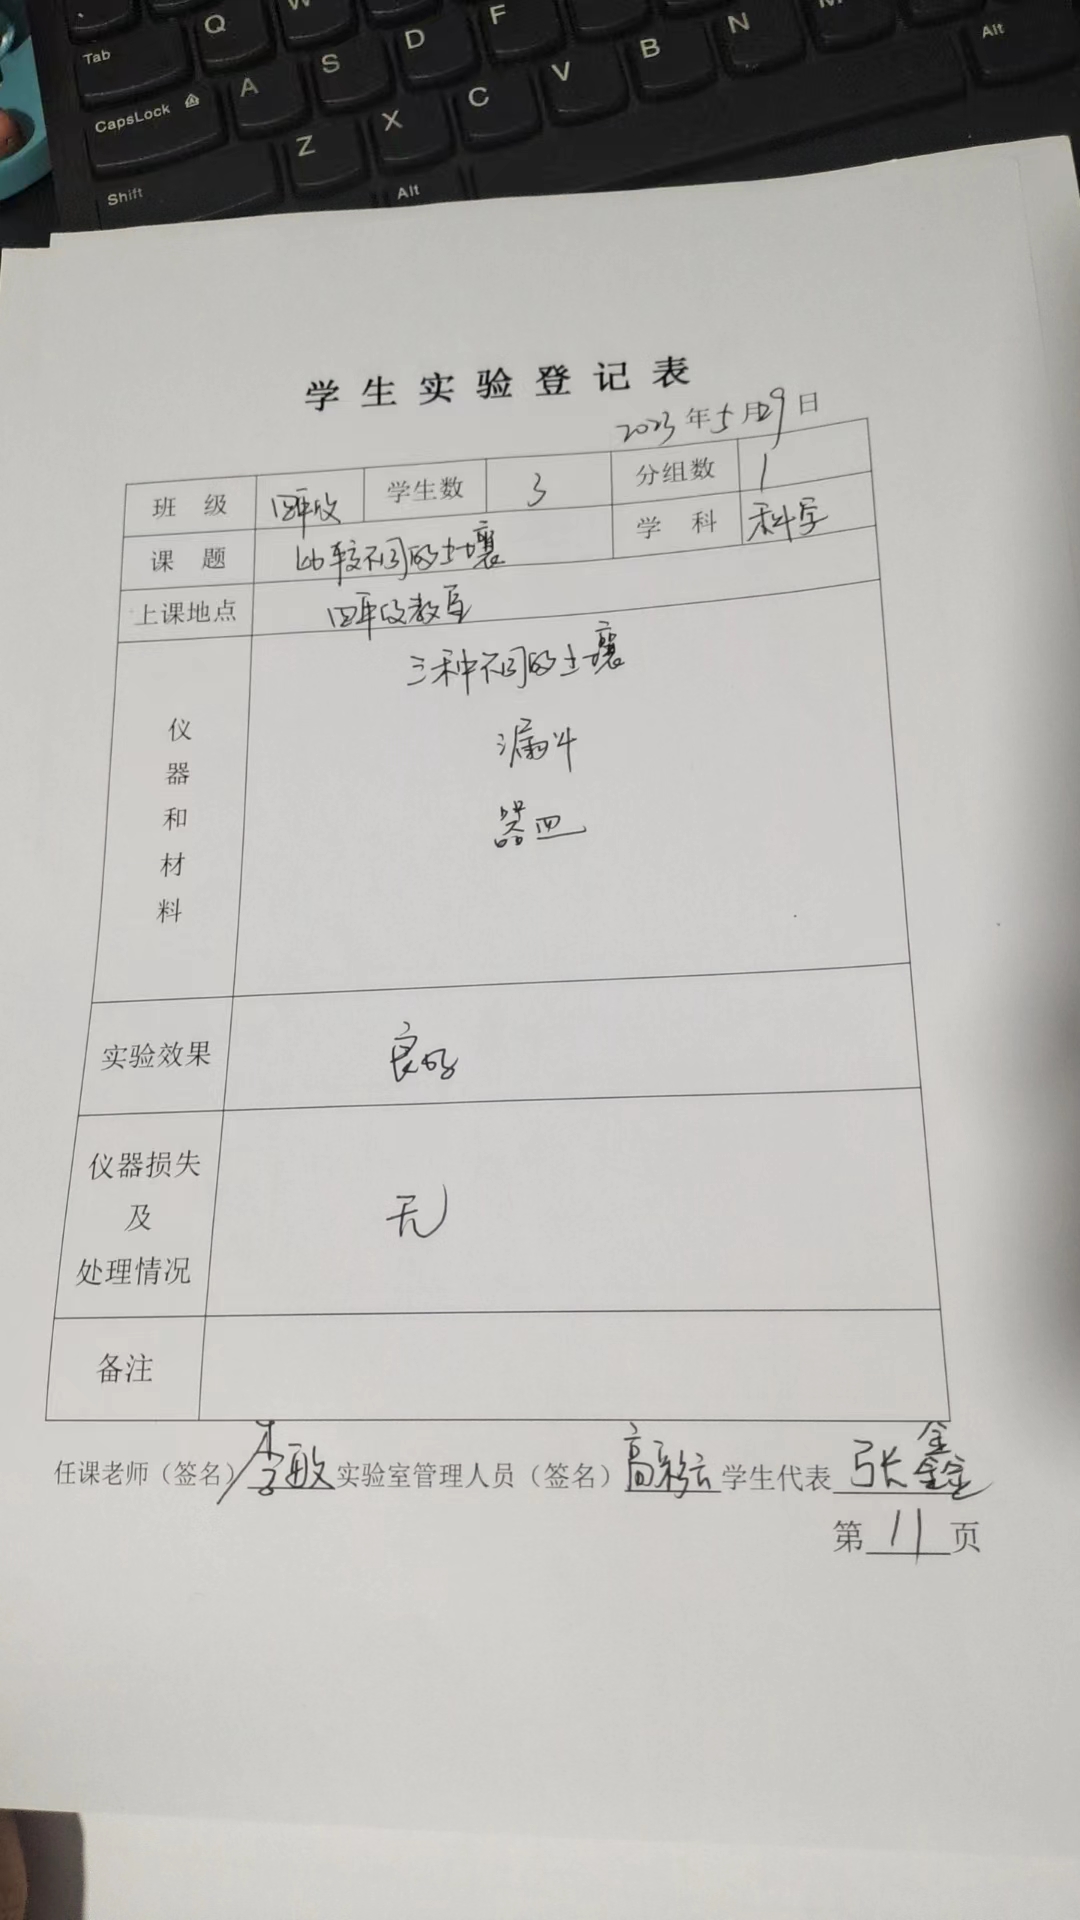 Q W
Tab A S D F
CapsLock Z X C V B N M Alt
Shift Alt
学生实验登记表
2023年5月29日
班 级 四年级 学生数 3 分组数 1
课 题 比较不同的土壤 学 科 科学
上课地点 四年级教室
仪器和材料
三种不同的土壤
漏斗
器皿
实验效果 良好
仪器损失
及 无
处理情况
备注
任课老师（签名）李敏 实验室管理人员（签名）高彩云 学生代表 张鑫鑫
第 11 页